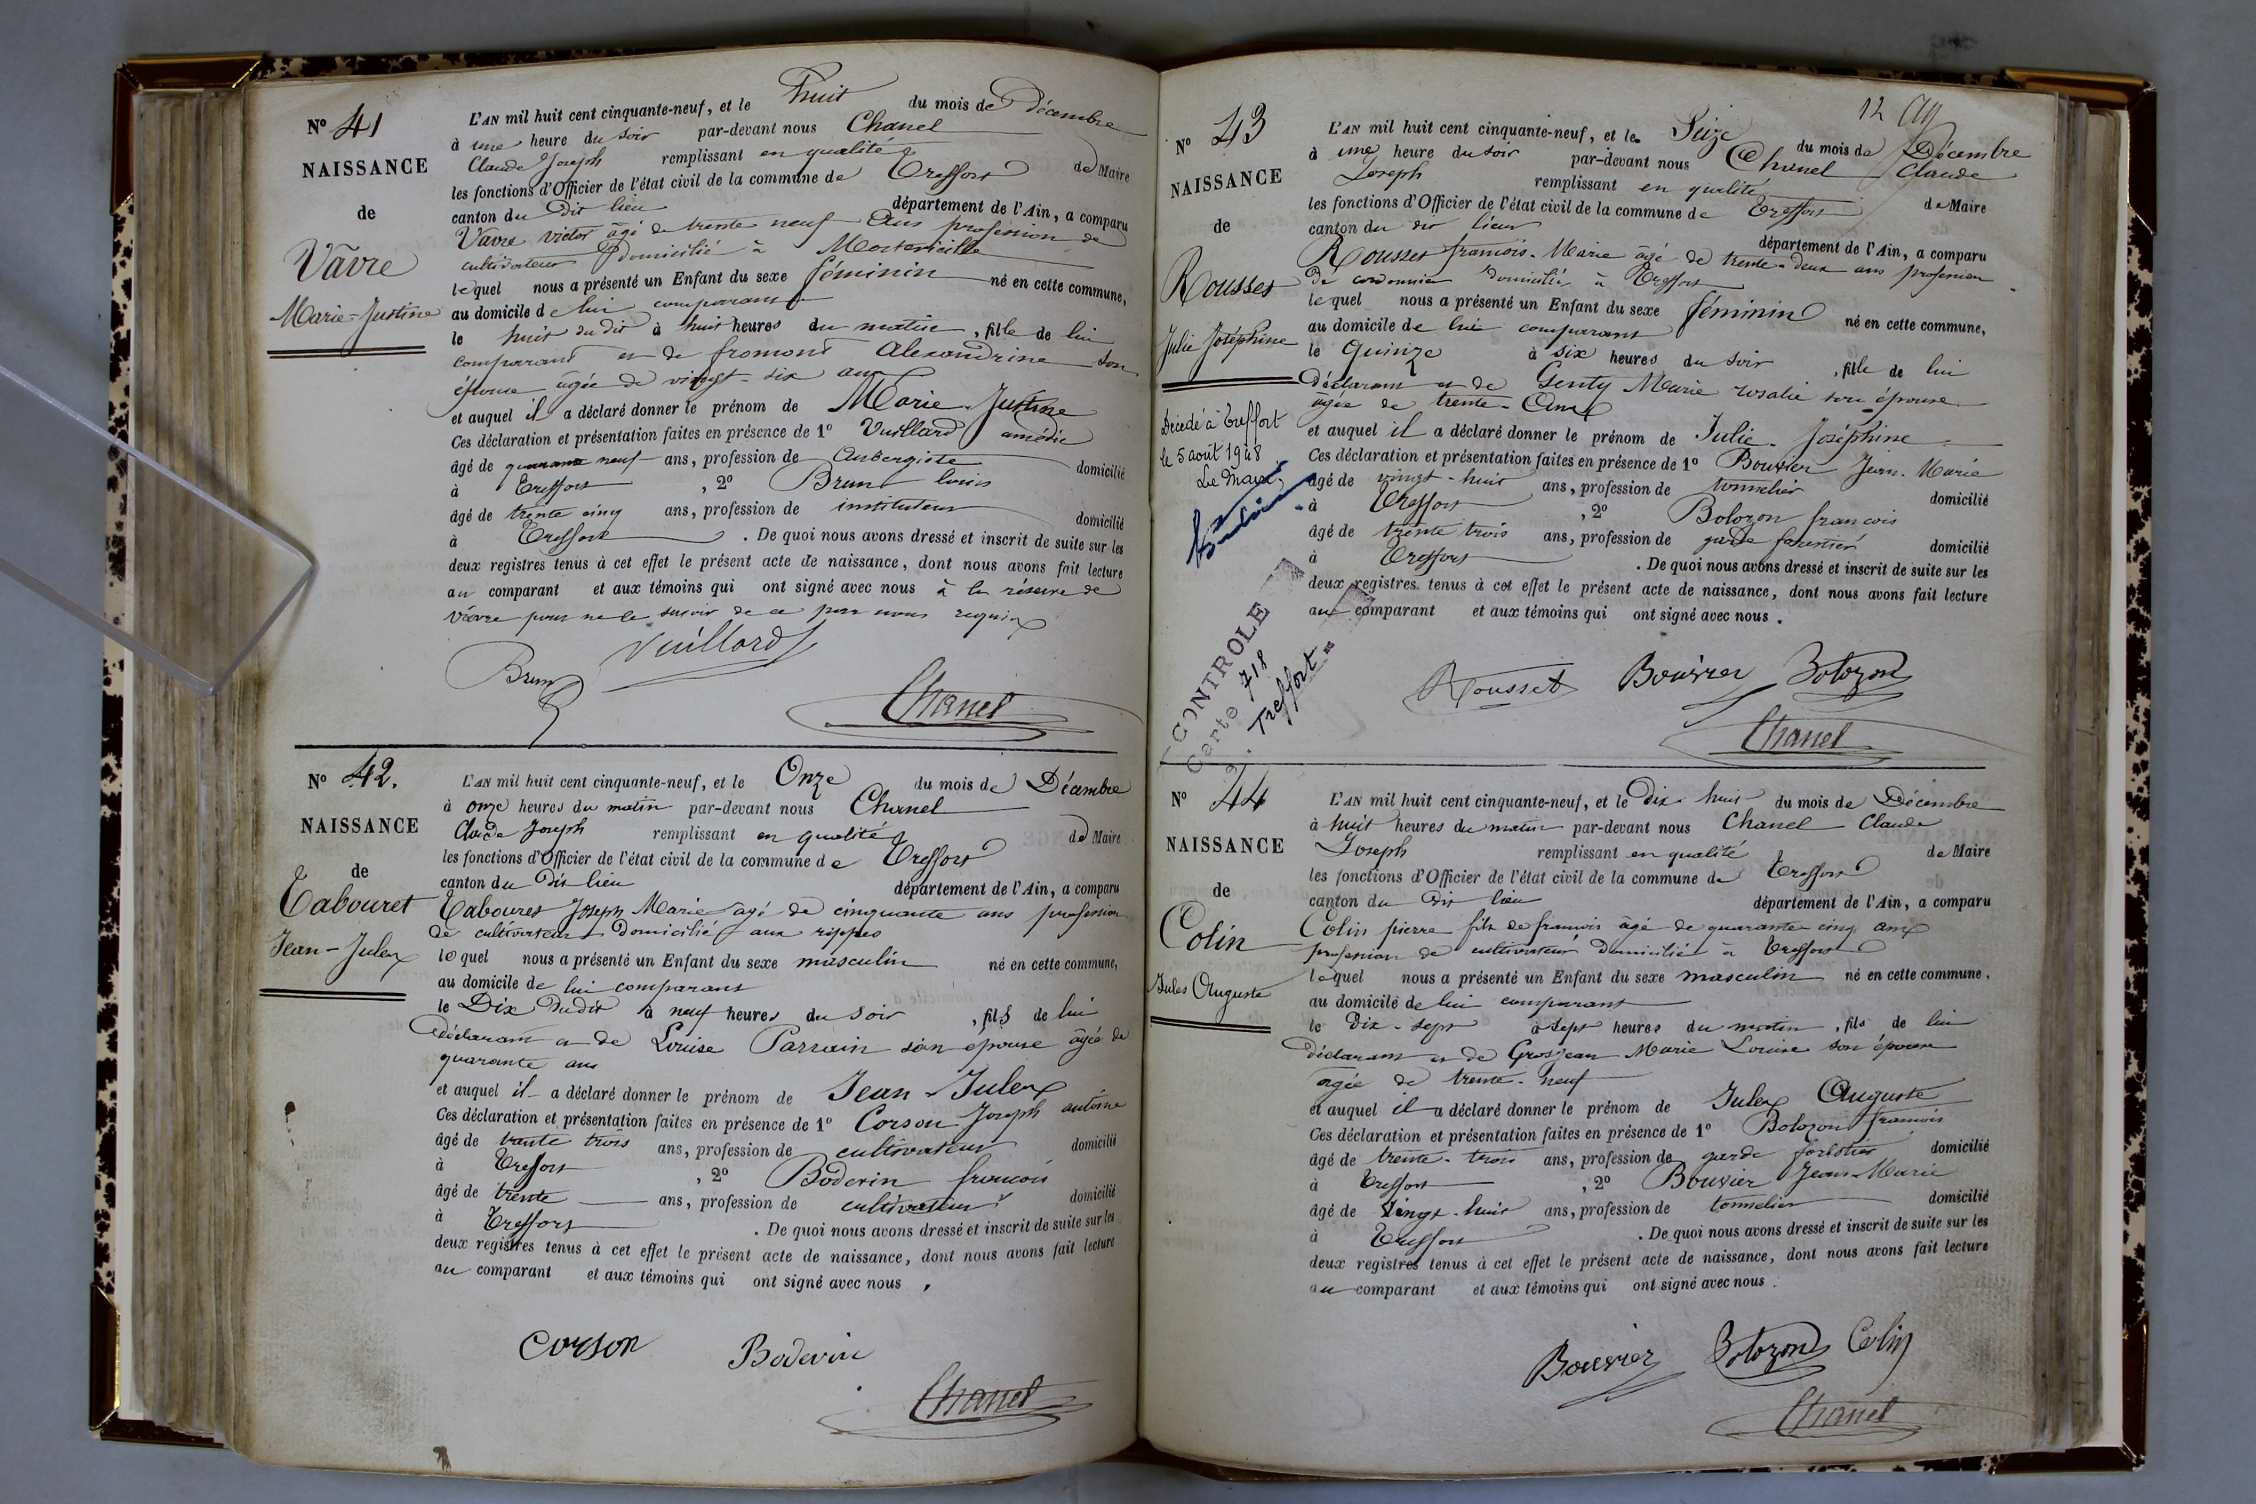 N° 41
NAISSANCE
de
Vavre
Marie-Justine
L'AN mil huit cent cinquante-neuf, et le huit du mois de Décembre
à une heure du soir par-devant nous Chanel
Claude Joseph remplissant en qualité de Maire
les fonctions d'Officier de l'état civil de la commune de Treffort
canton du dit lieu département de l'Ain, a comparu
Vavre victor agé de trente neuf ans profession de
cultivateur domicilié à
lequel nous a présenté un Enfant du sexe féminin né en cette commune,
au domicile de lui comparant
le huit du dit à huit heures du matin, fille de lui
comparant et de fromont Alexandrine son
épouse agée de vingt-six ans
et auquel il a déclaré donner le prénom de Marie-Justine
Ces déclaration et présentation faites en présence de 1° Vuillard amédée
âgé de quarante neuf ans, profession de Aubergiste domicilié
à Treffort, 2° Brun louis
âgé de trente cinq ans, profession de instituteur domicilié
à Treffort. De quoi nous avons dressé et inscrit de suite sur les
deux registres tenus à cet effet le présent acte de naissance, dont nous avons fait lecture
au comparant et aux témoins qui ont signé avec nous à la réserve de
Vavre pour ne le savoir de ce par nous requis
Brun Vuillard
Chanel
N° 42.
NAISSANCE
de
Tabouret
Jean-Jules
L'AN mil huit cent cinquante-neuf, et le Onze du mois de Décembre
à onze heures du matin par-devant nous Chanel
Claude Joseph remplissant en qualité de Maire
les fonctions d'Officier de l'état civil de la commune de Treffort
canton du dit lieu département de l'Ain, a comparu
Tabouret Joseph Marie agé de cinquante ans profession
de cultivateur domicilié aux rippes
lequel nous a présenté un Enfant du sexe masculin né en cette commune,
au domicile de lui comparant
le Dix du dit à neuf heures du soir, fils de lui
déclarant et de Louise Parrain son épouse âgée de
quarante ans
et auquel il a déclaré donner le prénom de Jean-Jules
Ces déclaration et présentation faites en présence de 1° Corson Joseph antoine
âgé de trente trois ans, profession de cultivateur domicilié
à Treffort, 2° Boderin françois
âgé de trente ans, profession de cultivateur domicilié
à Treffort. De quoi nous avons dressé et inscrit de suite sur les
deux registres tenus à cet effet le présent acte de naissance, dont nous avons fait lecture
au comparant et aux témoins qui ont signé avec nous,
Corson Boderin
Chanel
12
N° 43
NAISSANCE
de
Rousset
Julie Joséphine
Décédé à Treffort
le 5 août 1948
Le Maire,
CONTROLE
Carte 718
Treffort
L'AN mil huit cent cinquante-neuf, et le Seize du mois de Décembre
à une heure du soir par-devant nous Chanel Claude
Joseph remplissant en qualité de Maire
les fonctions d'Officier de l'état civil de la commune de Treffort
canton du dit lieu département de l'Ain, a comparu
Rousset françois-Marie âgé de trente-deux ans profession
de cordonnier domicilié à Treffort
lequel nous a présenté un Enfant du sexe féminin né en cette commune,
au domicile de lui comparant
le quinze à six heures du soir, fille de lui
déclarant et de Genty Marie rosalie son épouse
âgée de trente-ans
et auquel il a déclaré donner le prénom de Julie-Joséphine
Ces déclaration et présentation faites en présence de 1° Bouvier Jean-Marie
âgé de vingt-huit ans, profession de tonnelier domicilié
à Treffort, 2° Bolozon françois
âgé de trente trois ans, profession de garde forestier domicilié
à Treffort. De quoi nous avons dressé et inscrit de suite sur les
deux registres tenus à cet effet le présent acte de naissance, dont nous avons fait lecture
au comparant et aux témoins qui ont signé avec nous.
Rousset Bouvier Bolozon
Chanel
N° 44
NAISSANCE
de
Colin
Jules Auguste
L'AN mil huit cent cinquante-neuf, et le Dix-huit du mois de Décembre
à huit heures du matin par-devant nous Chanel Claude
Joseph remplissant en qualité de Maire
les fonctions d'Officier de l'état civil de la commune de Treffort
canton du dit lieu département de l'Ain, a comparu
Colin pierre fils de françois âgé de quarante cinq ans
profession de cultivateur domicilié à Treffort
lequel nous a présenté un Enfant du sexe masculin né en cette commune,
au domicile de lui comparant
le dix-sept à sept heures du matin, fils de lui
déclarant et de Grosjean Marie Louise son épouse
âgée de trente-neuf
et auquel il a déclaré donner le prénom de Jules Auguste
Ces déclaration et présentation faites en présence de 1° Bolozon françois
âgé de trente-trois ans, profession de garde forestier domicilié
à Treffort, 2° Bouvier Jean-Marie
âgé de vingt-huit ans, profession de tonnelier domicilié
à Treffort. De quoi nous avons dressé et inscrit de suite sur les
deux registres tenus à cet effet le présent acte de naissance, dont nous avons fait lecture
au comparant et aux témoins qui ont signé avec nous.
Bouvier Bolozon Colin
Chanel